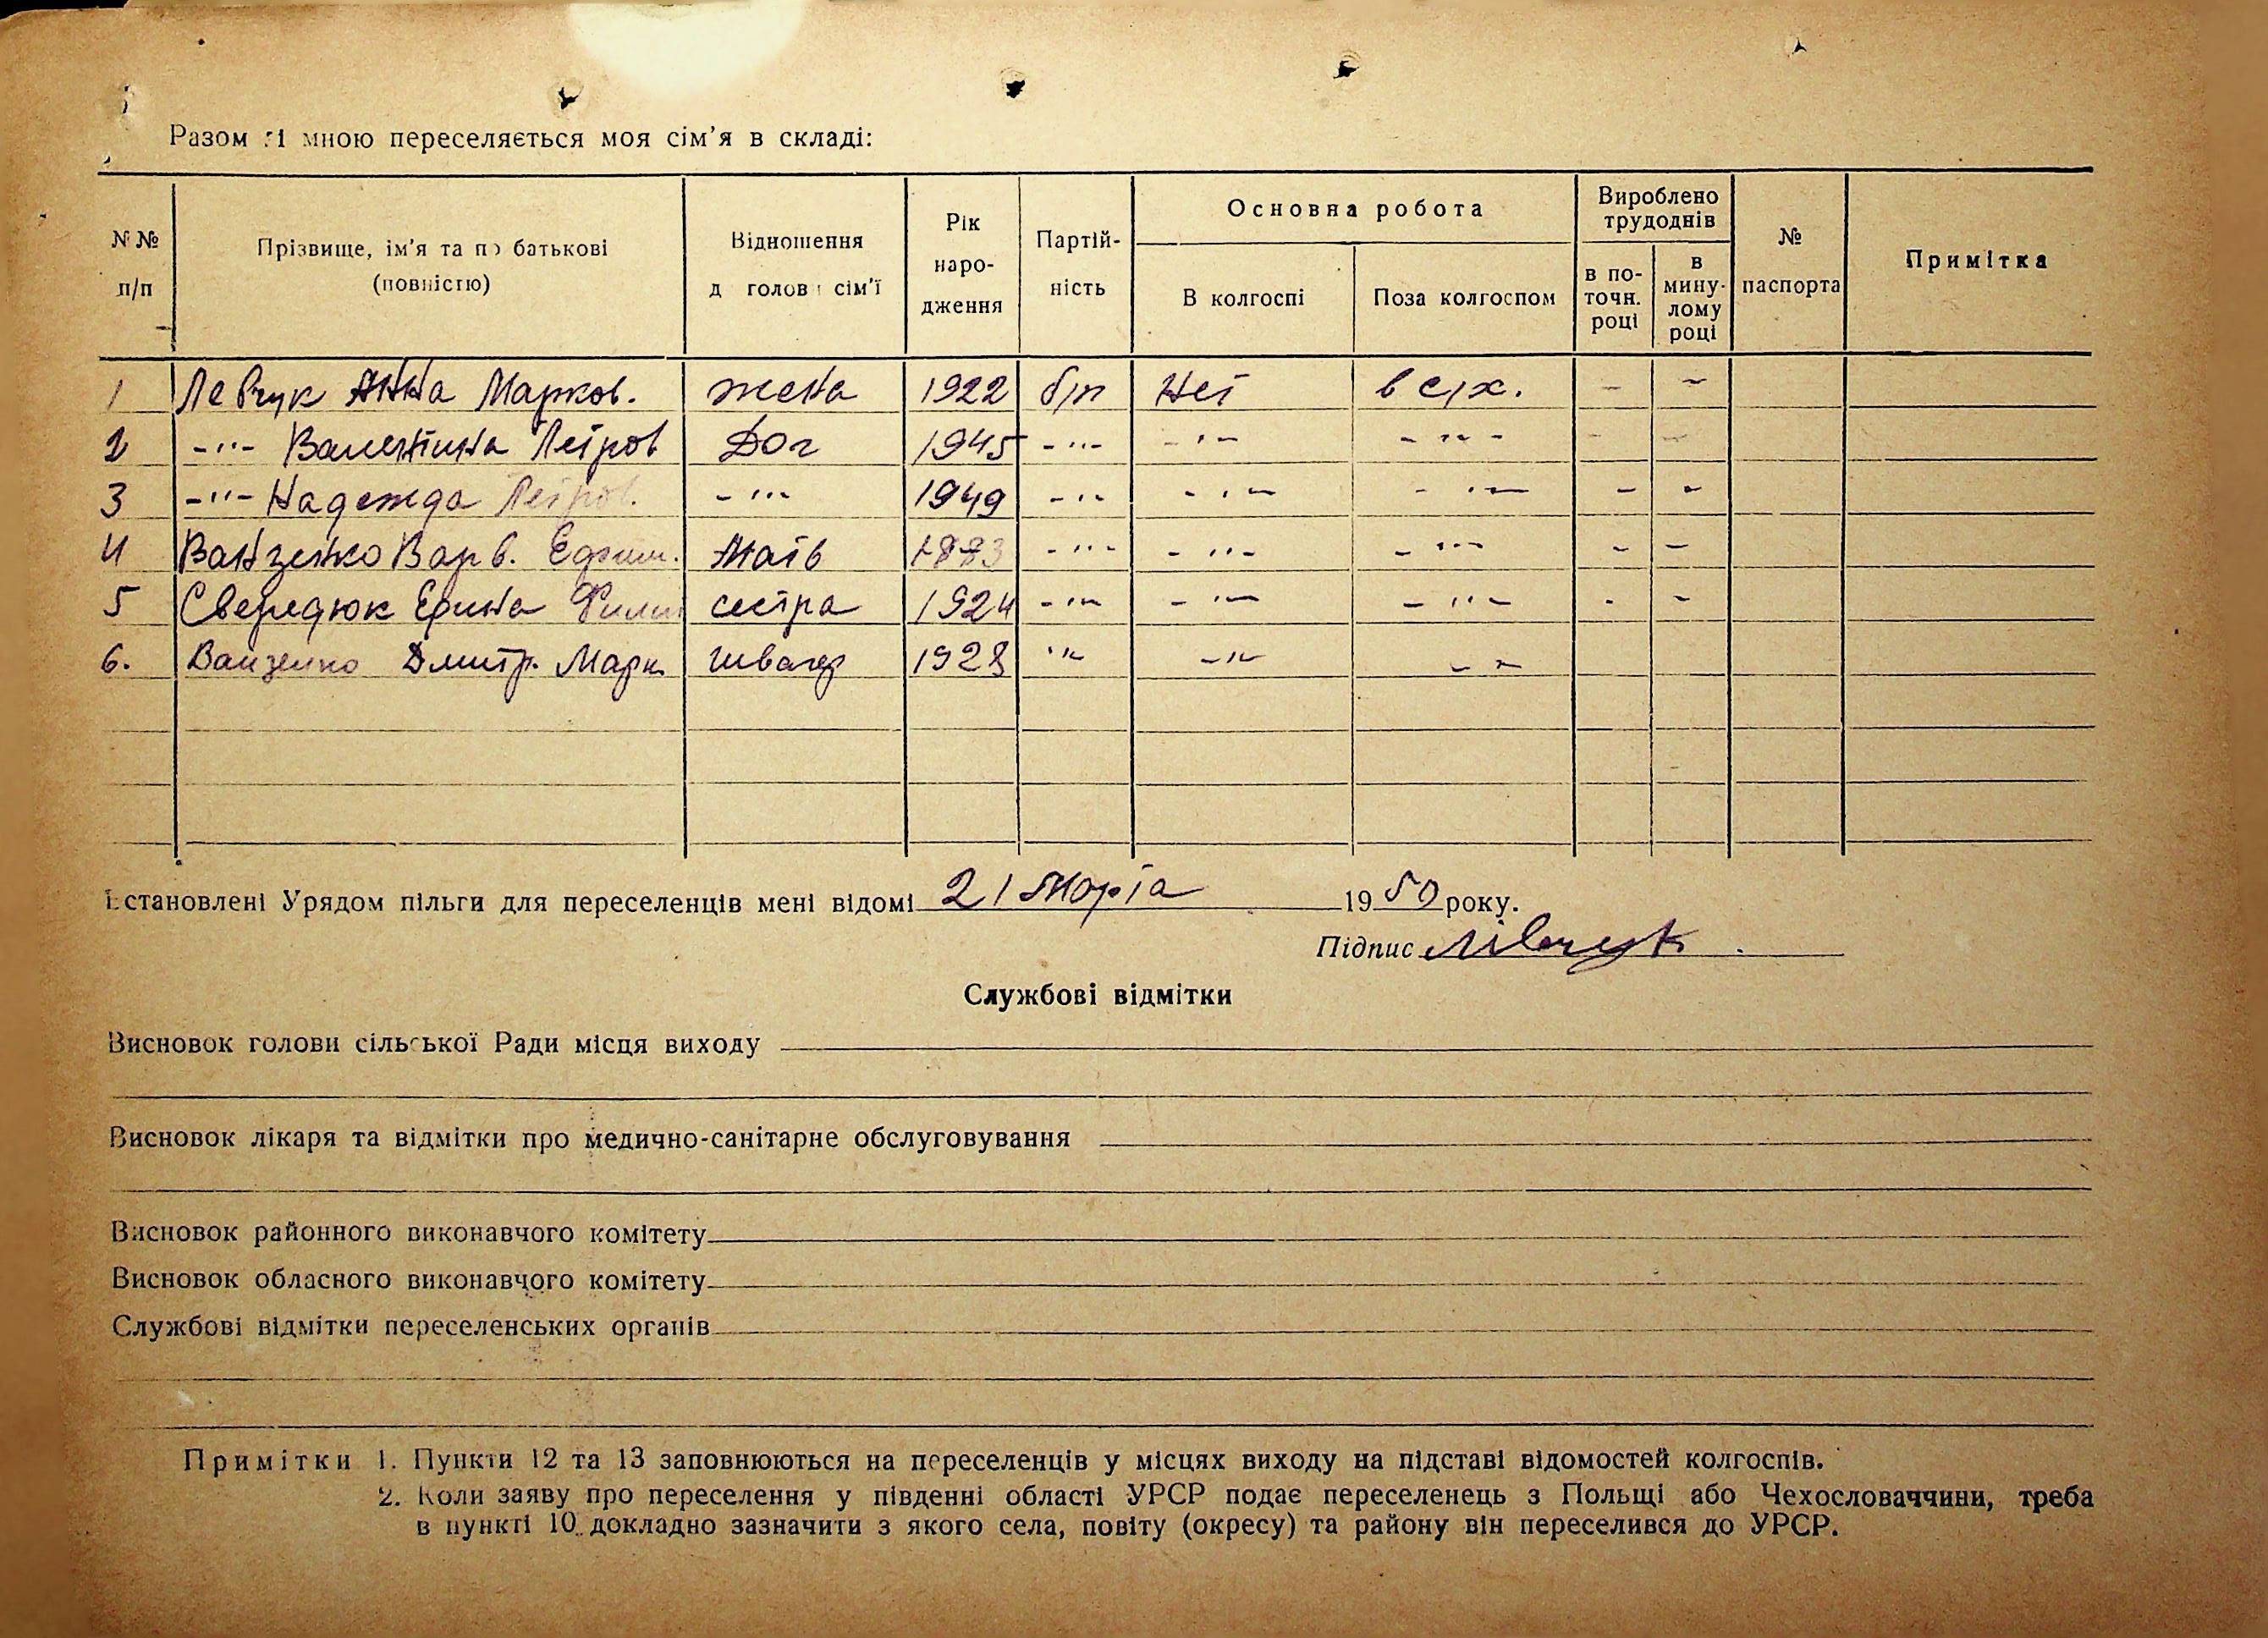 Разом зі мною переселяється моя сім'я в складі:
№№ п/п
Прізвище, ім'я та по батькові (повністю)
Відношення д голов сім'ї
Рік народження
Партійність
Основна робота
В колгоспі
Поза колгоспом
Вироблено трудоднів
в поточн. році
в минулому році
№ паспорта
Примітка
1 Левчук Анна Марков. жена 1922 б/п Нет в с/х. – –
2 -"- Валентина Петров Доч 1945 -"- -"- -"- – –
3 -"- Надежда Петров. -"- 1949 -"- -"- -"- – –
4 Ванзенко Варв. Ефим. Мать -"- -"- -"- – –
5 Свередюк Ерина Фили сестра 1924 -"- -"- -"- - –
6. Ванзенко Дмитр. Марк. швагер 1928 -"- -"- -"-
Встановлені Урядом пільги для переселенців мені відомі 21 Марта 1950 року.
Підпис Левчук
Службові відмітки
Висновок голови сільської Ради місця виходу
Висновок лікаря та відмітки про медично-санітарне обслуговування
Висновок районного виконавчого комітету
Висновок обласного виконавчого комітету
Службові відмітки переселенських органів
Примітки 1. Пункти 12 та 13 заповнюються на переселенців у місцях виходу на підставі відомостей колгоспів.
2. Коли заяву про переселення у південні області УРСР подає переселенець з Польщі або Чехословаччини, треба
в пункті 10 докладно зазначити з якого села, повіту (окресу) та району він переселився до УРСР.